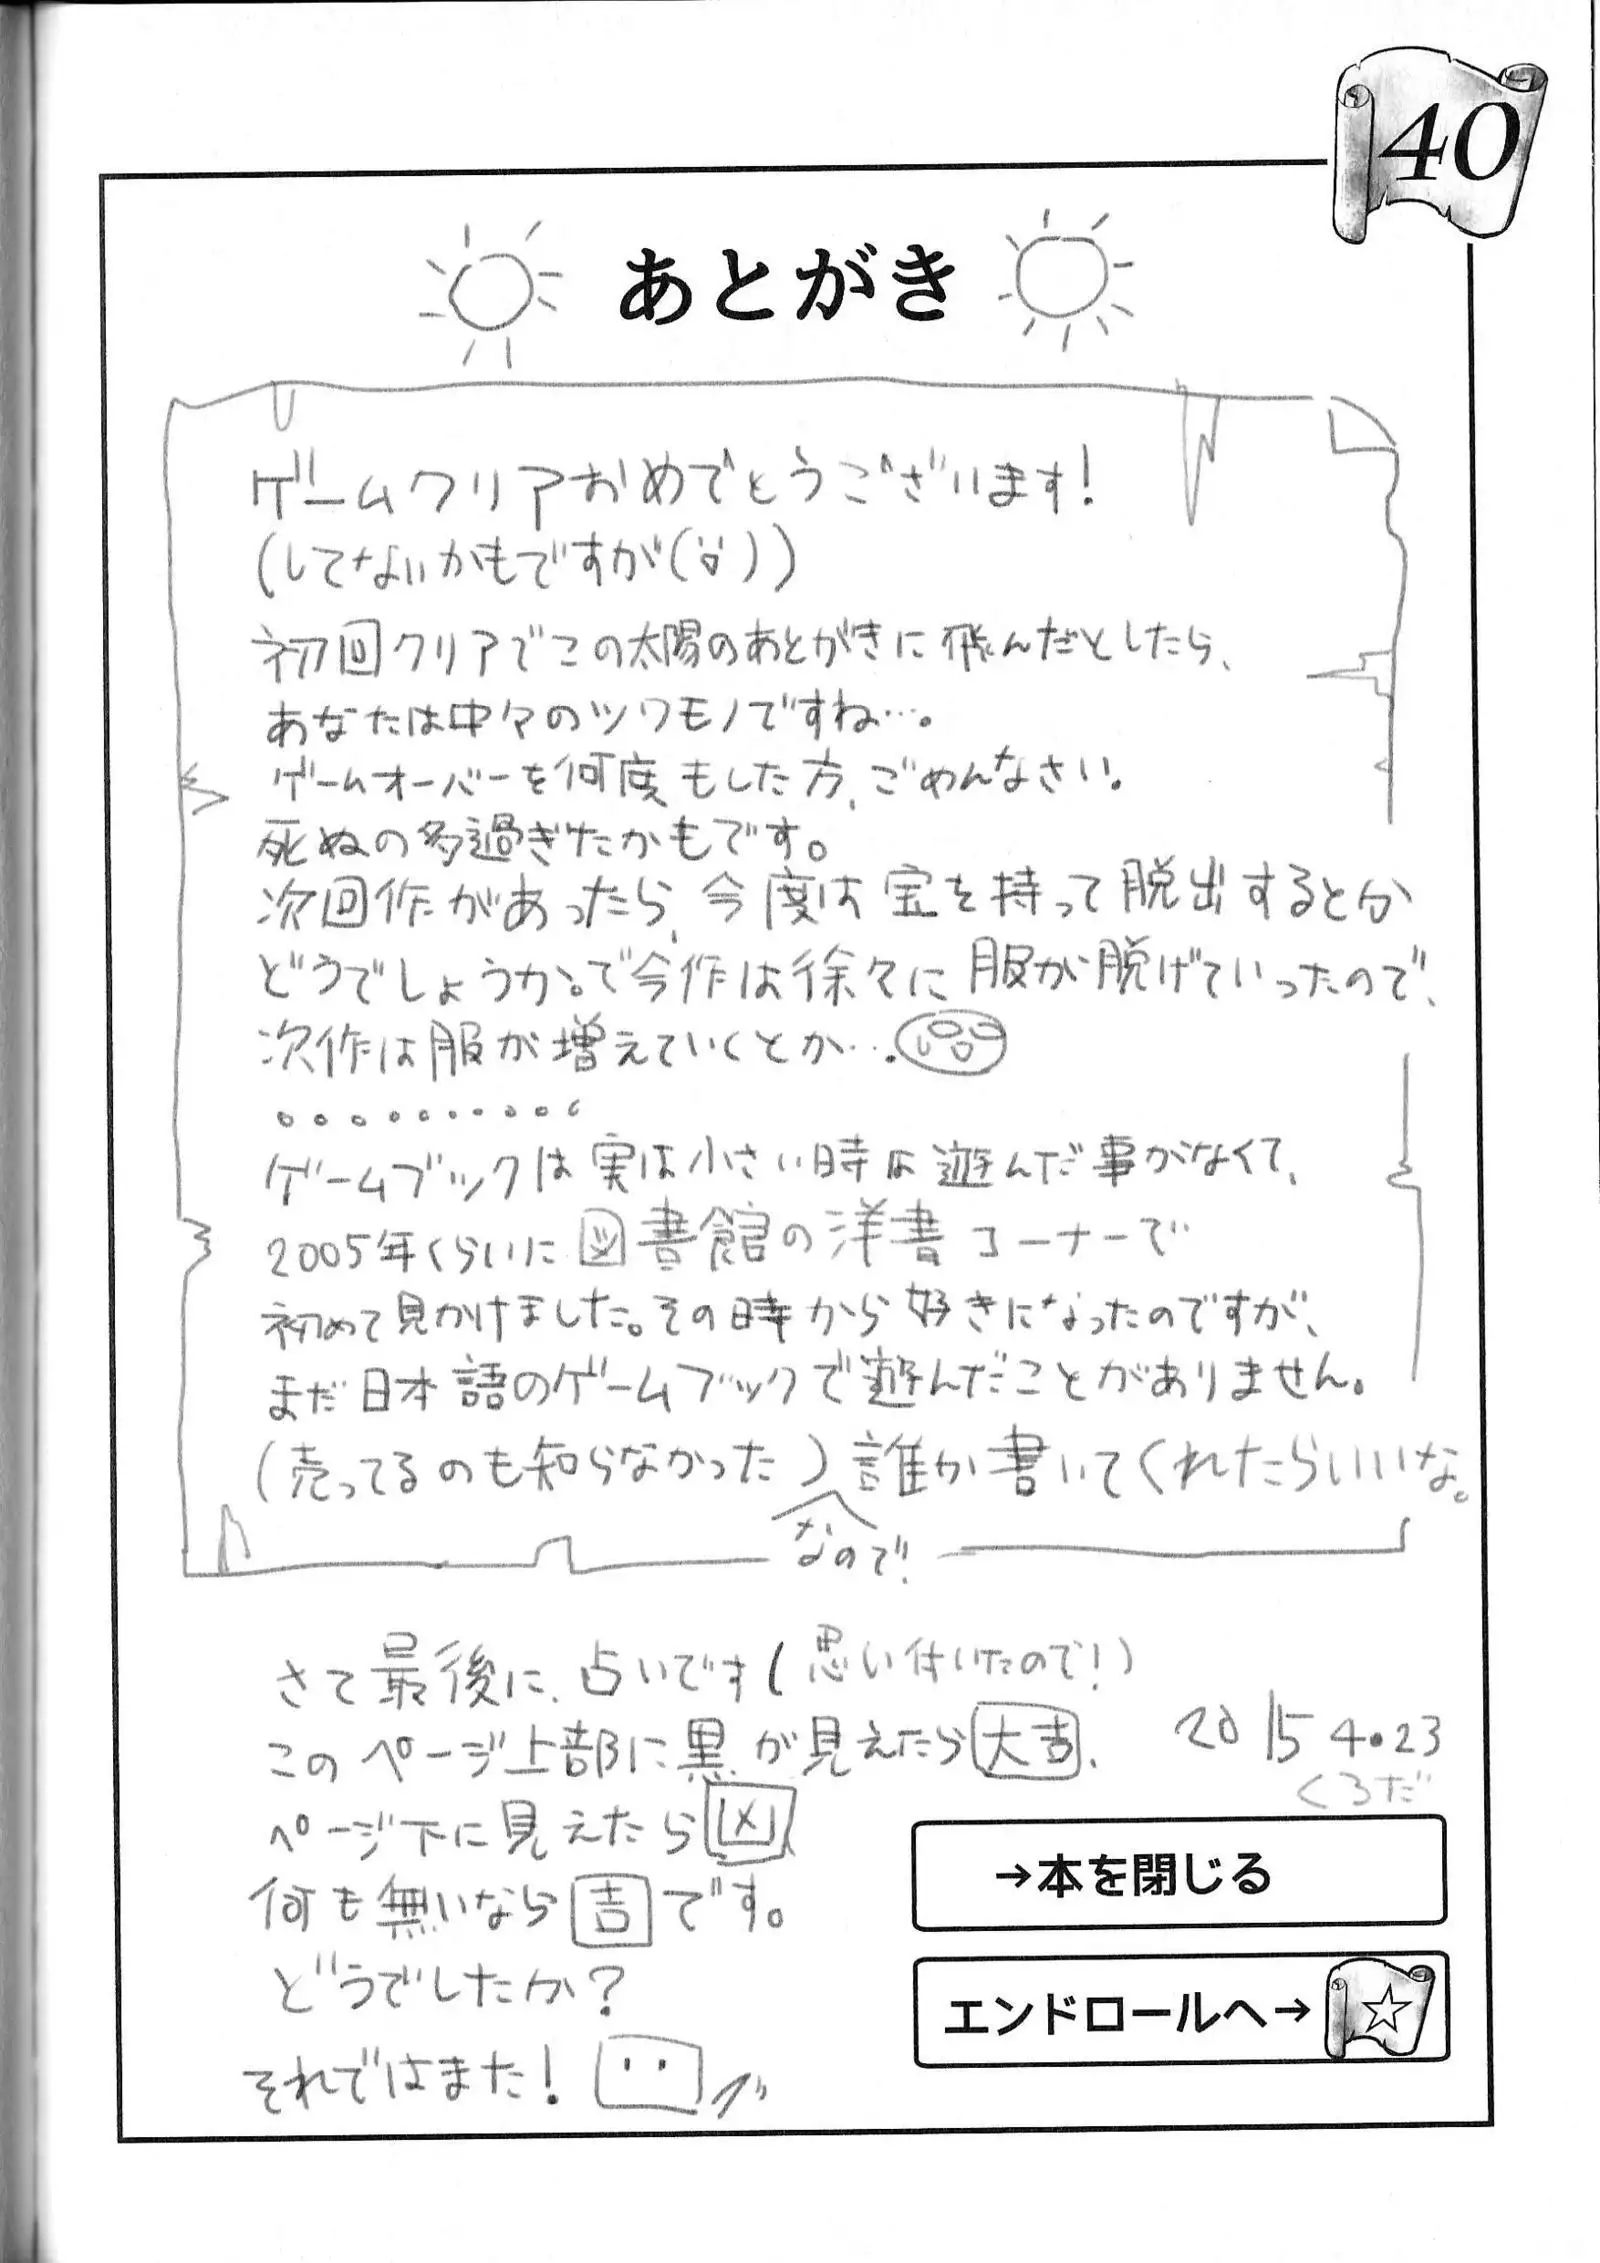 40
あとがき
ゲームクリアおめでとうございます!
(してないかもですが( ))
初回クリアでこの太陽のあとがきに飛んだとしたら、
あなたは中々のツワモノですね…。
ゲームオーバーを何度もした方、ごめんなさい。
死ぬの多過ぎたかもです。
次回作があったら、今度は宝を持って脱出するとか
どうでしょうか。で今作は徐々に服が脱げていったので、
次作は服が増えていくとか…。
。。。。。。。。。。
ゲームブックは実は小さい時は遊んだ事がなくて、
2005年くらいに図書館の洋書コーナーで
初めて見かけました。その時から好きになったのですが、
まだ日本語のゲームブックで遊んだことがありません。
(売ってるのも知らなかった)誰か書いてくれたらいいな。
なので!
さて最後に、占いです(思い付いたので!)
このページ上部に黒が見えたら大吉、
2015 4.23
くろだ
ページ下に見えたら凶
何も無いなら吉です。
どうでしたか?
それではまた!
→本を閉じる
エンドロールへ→